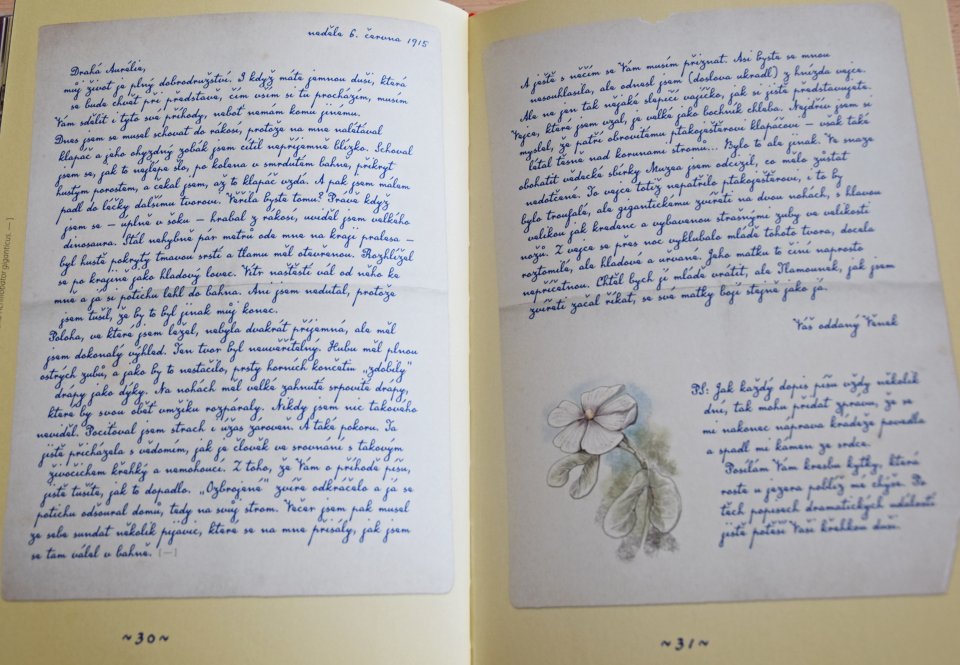 neděle 6. června 1915
Drahá Aurélie,
můj život je plný dobrodružství. I když máte jemnou duši, která
se bude chvět pre představě, čím vším si tu procházím, musím
Vám sdělit i tyto své příhody, neboť nemám komu jinému.
Dnes jsem se musel schovat do rákosí, protože na mne nalétával
klapáč a jeho ohyzdný zobák jsem cítil nepříjemně blízko. Schoval
jsem se, jak to nejlépe šlo, po kolena v smrdutém bahně, přikryt
hustým porostem, a čekal jsem, až to klapáč vzdá. A pak jsem málem
padl do léčky dalšímu tvorovi. Věřila byste tomu? Právě když
jsem se – úplně v šoku – hrabal z rákosí, uviděl jsem velkého
dinosaura. Stál nehybně pár metrů ode mne na kraji pralesa –
byl hustě pokrytý tmavou srstí a tlamu měl otevřenou. Rozhlížel
se po krajině jako hladový lovec. Vítr naštěstí vál od něho ke
mně a já se potichu lehl do bahna. Ani jsem nedutal, protože
jsem tušil, že by to byl jinak můj konec.
Poloha, ve které jsem ležel, nebyla dvakrát příjemná, ale měl
jsem dokonalý výhled. Ten tvor byl neuvěřitelný. Hubu měl plnou
ostrých zubů, a jako by to nestačilo, prsty horních končetin „zdobily“
drápy jako dýky. Na nohách měl velké zahnuté srpovité drápy,
které by svou oběť vmžiku rozpáraly. Nikdy jsem nic takového
neviděl. Pociťoval jsem strach i úžas zároveň. A také pokoru. Ta
jistě přicházela s vědomím, jak je člověk ve srovnání s takovým
živočichem křehký a nemohoucí. Z toho, že Vám o příhodě píšu,
jistě tušíte, jak to dopadlo. „Ozbrojené“ zvíře odkráčelo a já se
potichu odsoural domů, tedy na svůj strom. Večer jsem pak musel
ze sebe sundat několik pijavic, které se na mne přisály, jak jsem
se tam válel v bahně. [—]
~30~
A ještě s něčím se Vám musím přiznat. Asi byste se mnou
nesouhlasila, ale odnesl jsem (doslova ukradl) z hnízda vejce.
Ale ne jen tak nějaké slepičí vajíčko, jak si jistě představujete.
Vejce, které jsem vzal, je velké jako bochník chleba. Nejdřív jsem si
myslel, že patří obrovitému ptakoještěrovi klapáčovi – však také
létal těsně nad korunami stromů... Bylo to ale jinak. Ve snaze
obohatit vědecké sbírky Muzea jsem odcizil, co mělo zůstat
nedotčené. To vejce totiž nepatřilo ptakoještěrovi, i to by
bylo troufalé, ale gigantickému zvířeti na dvou nohách, s hlavou
velikou jak kredenc a vybavenou strašnými zuby ve velikosti
nožů. Z vejce se přes noc vyklubalo mládě tohoto tvora, docela
roztomilé, ale hladové a urvané. Jeho matku to činí naprosto
nepříčetnou. Chtěl bych jí mládě vrátit, ale Tlamounek, jak jsem
zvířeti začal říkat, se své matky bojí stejně jako já.
Váš oddaný Věnek
PS: Jak každý dopis píšu vždy několik
dní, tak mohu přidat zprávu, že se
mi nakonec náprava krádeže povedla
a spadl mi kámen ze srdce.
Posílám Vám kresbu kytky, která
roste u jezera poblíž mé chýše. Po
těch popisech dramatických událostí
jistě potěší Vaši křehkou duši.
~31~